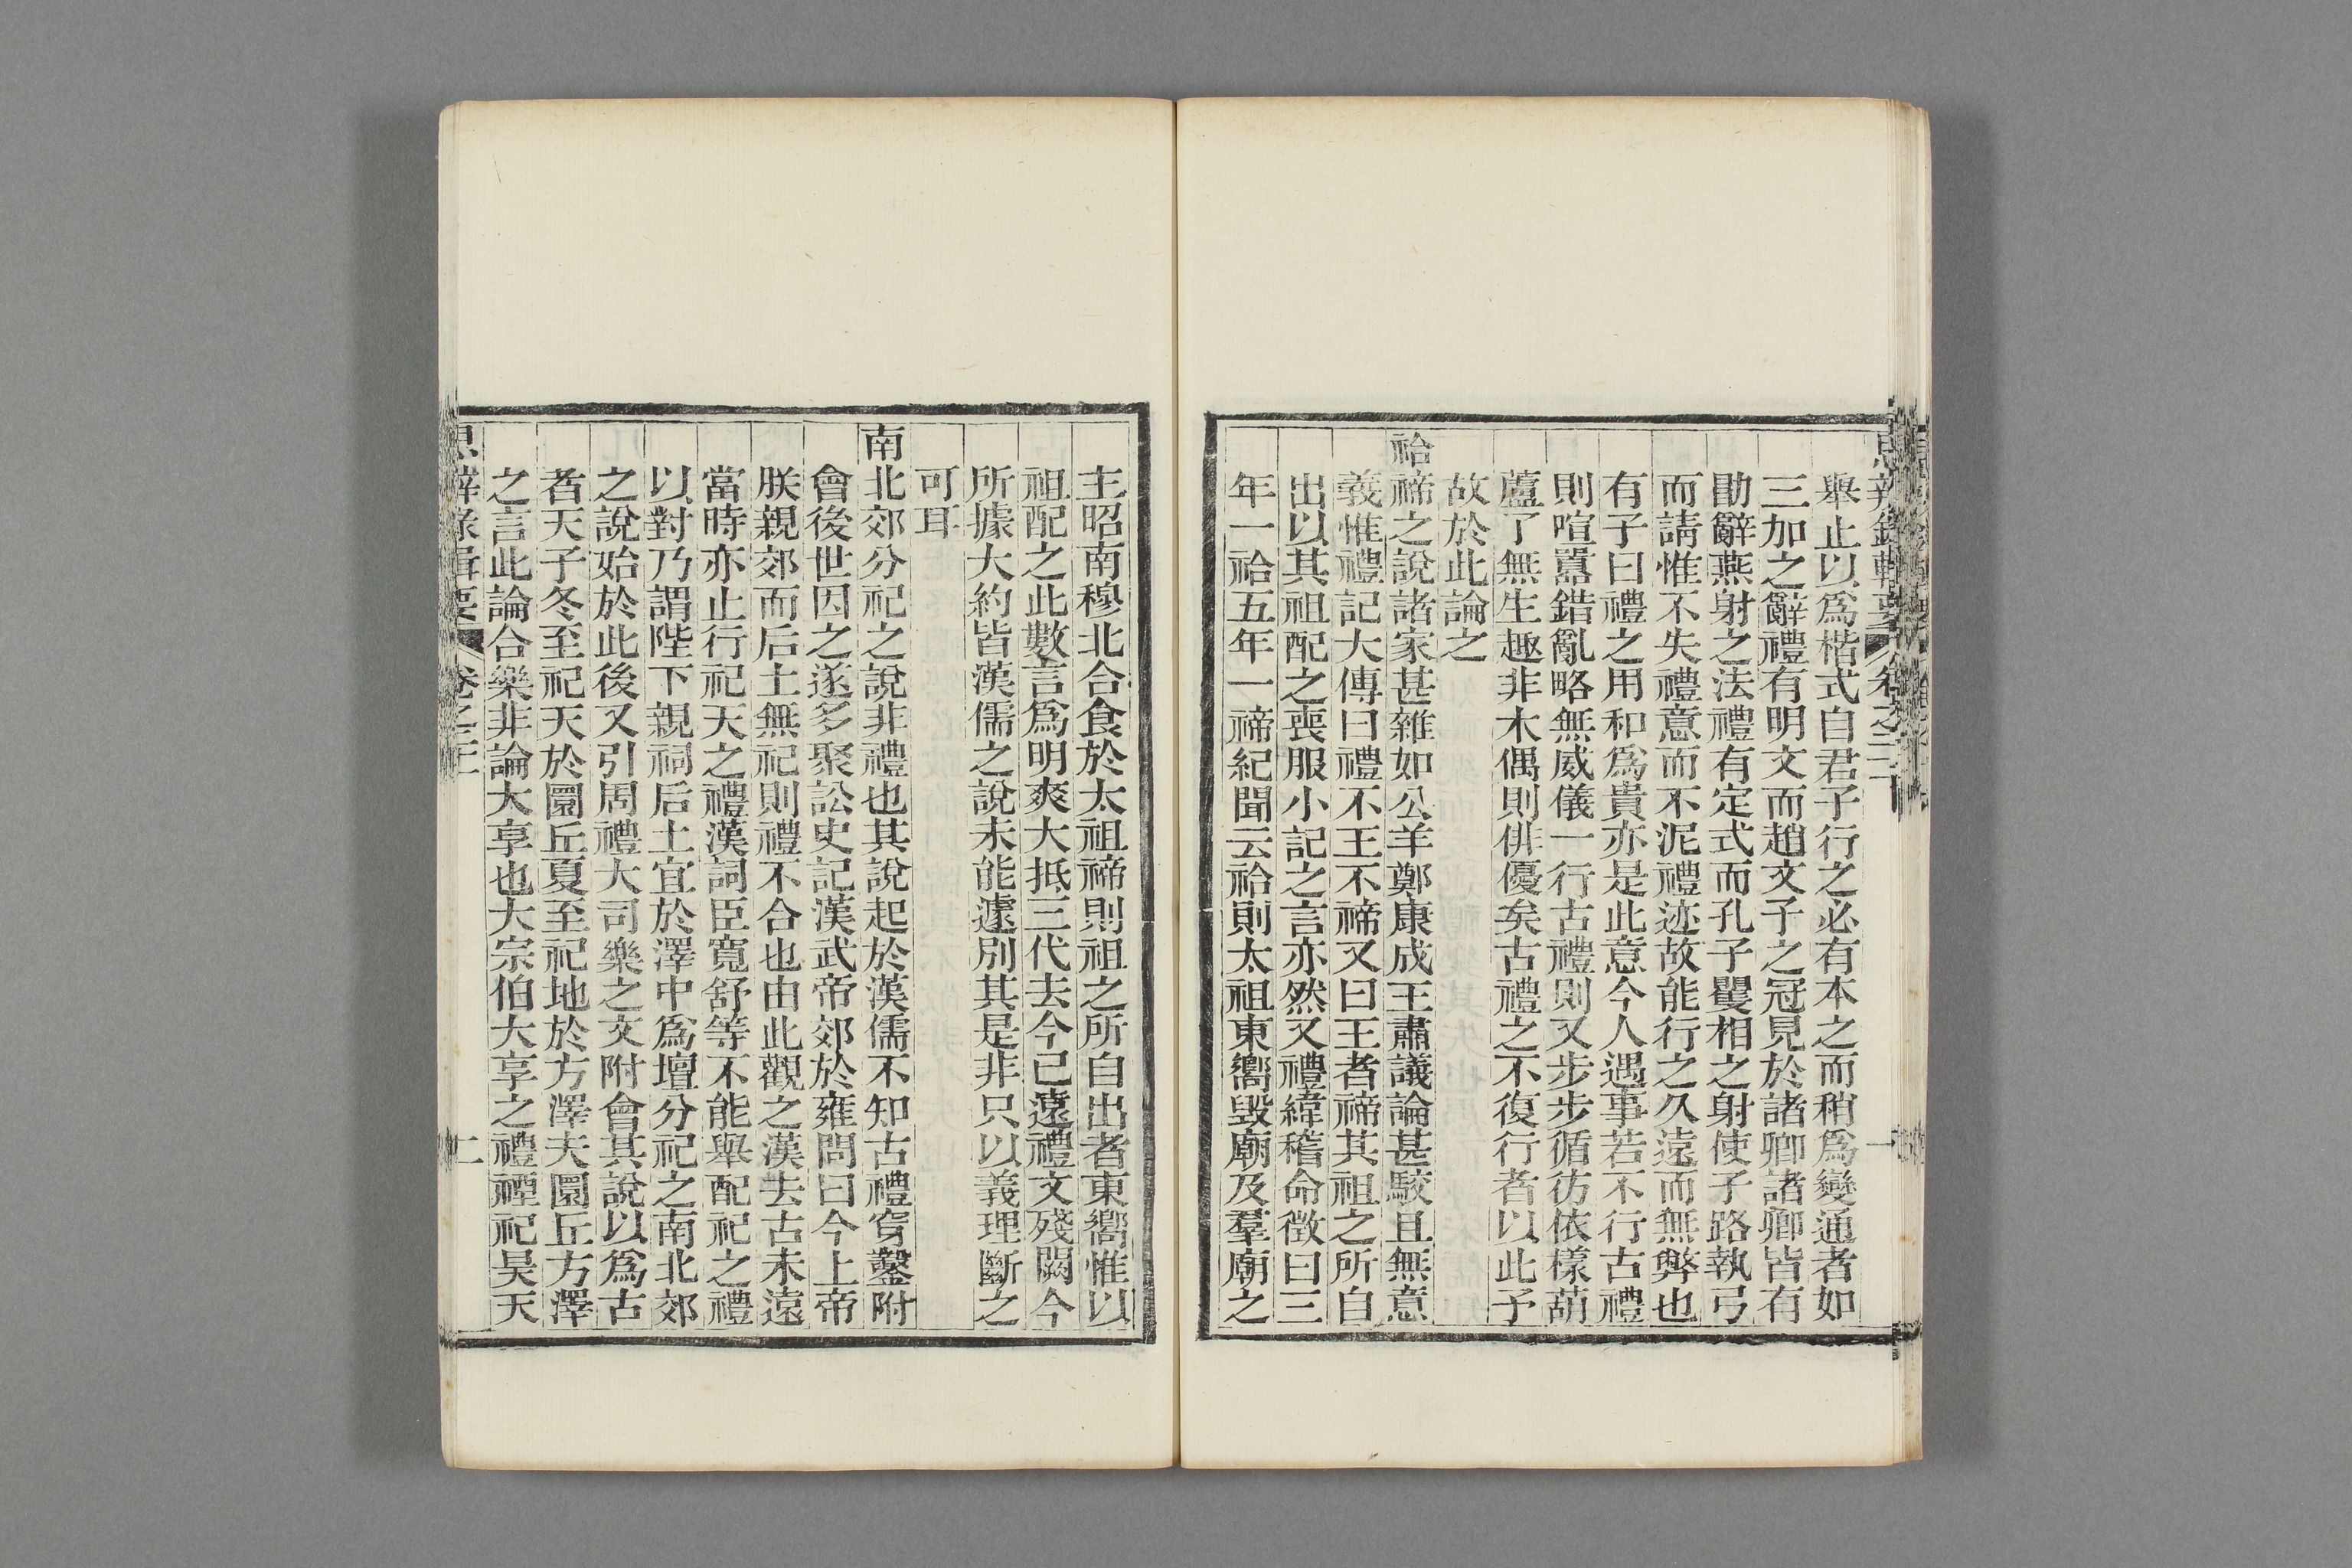 思辨錄輯要 卷之二十 一
舉止以爲楷式自君子行之必有本之而稍爲變通者如
三加之辭禮有明文而趙文子之冠見於諸卿諸卿皆有
勖辭燕射之法禮有定式而孔子矍相之射使子路執弓
而請惟不失禮意而不泥禮迹故能行之久遠而無弊也
有子曰禮之用和爲貴亦是此意今人遇事若不行古禮
則喧囂錯亂略無威儀一行古禮則又步步循彷依樣葫
蘆了無生趣非木偶則俳優矣古禮之不復行者以此予
故於此論之
祫禘之說諸家甚雜如公羊鄭康成王肅議論甚駁且無意
義惟禮記大傳曰禮不王不禘又曰王者禘其祖之所自
出以其祖配之喪服小記之言亦然又禮緯稽命徵曰三
年一祫五年一禘紀聞云祫則太祖東嚮毀廟及羣廟之
主昭南穆北合食於太祖禘則祖之所自出者東嚮惟以
祖配之此數言爲明爽大抵三代去今已遠禮文殘闕今
所據大約皆漢儒之說未能遽別其是非只以義理斷之
可耳
南北郊分祀之說非禮也其說起於漢儒不知古禮穿鑿附
會後世因之遂多聚訟史記漢武帝郊於雍問曰今上帝
朕親郊而后土無祀則禮不合也由此觀之漢去古未遠
當時亦止行祀天之禮漢詞臣寬舒等不能舉配祀之禮
以對乃謂陛下親祠后土宜於澤中爲壇分祀之南北郊
之說始於此後又引周禮大司樂之文附會其說以爲古
者天子冬至祀天於圜丘夏至祀地於方澤夫圜丘方澤
之言此論合樂非論大享也大宗伯大享之禮禋祀昊天
思辨錄輯要 卷之二 二